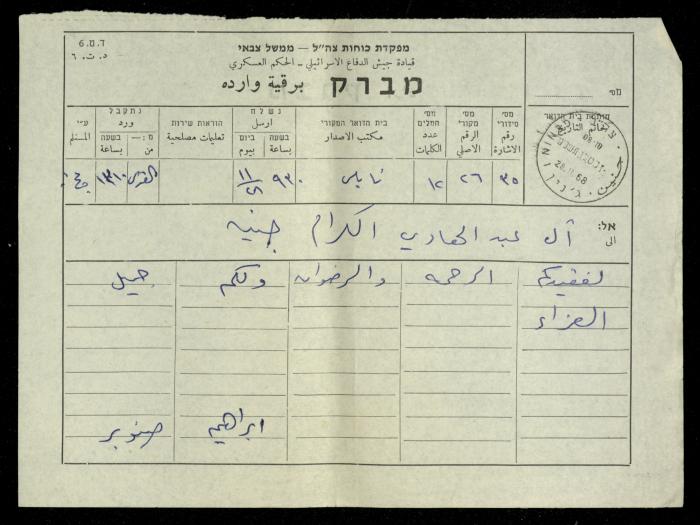 ד.ט.6
د.ت.٦
מפקדת כוחות צה"ל — ממשל צבאי
قيادة جيش الدفاع الاسرائيلي - الحكم العسكري
מברק برقية وارده
מס'
חותמת בית הדואר
خاتم التاريخ
מס' סידורי
رقم الاشارة
מס' מקורי
الرقم الاصلي
מס' המלים
عدد الكلمات
בית הדואר המקורי
مكتب الاصدار
נשלח
ارسل
בשעה
بساعة
ביום
بيوم
הוראות שירות
تعليمات مصلحية
נתקבל
ورد
בשעה
بساعة
מ:—
من
ע"י
المستلم
٣٥
٢٦
١٢
نابلس
٩٣٠
١١/٢٨
١٣١٠
القدس
JENIN
28.11.68
אל:
الى
آل عبد الهادي الكرام جنين
لفقيدكم الرحمه والرضوان ولكم جميل
العزاء
ابراهيم صنوبر